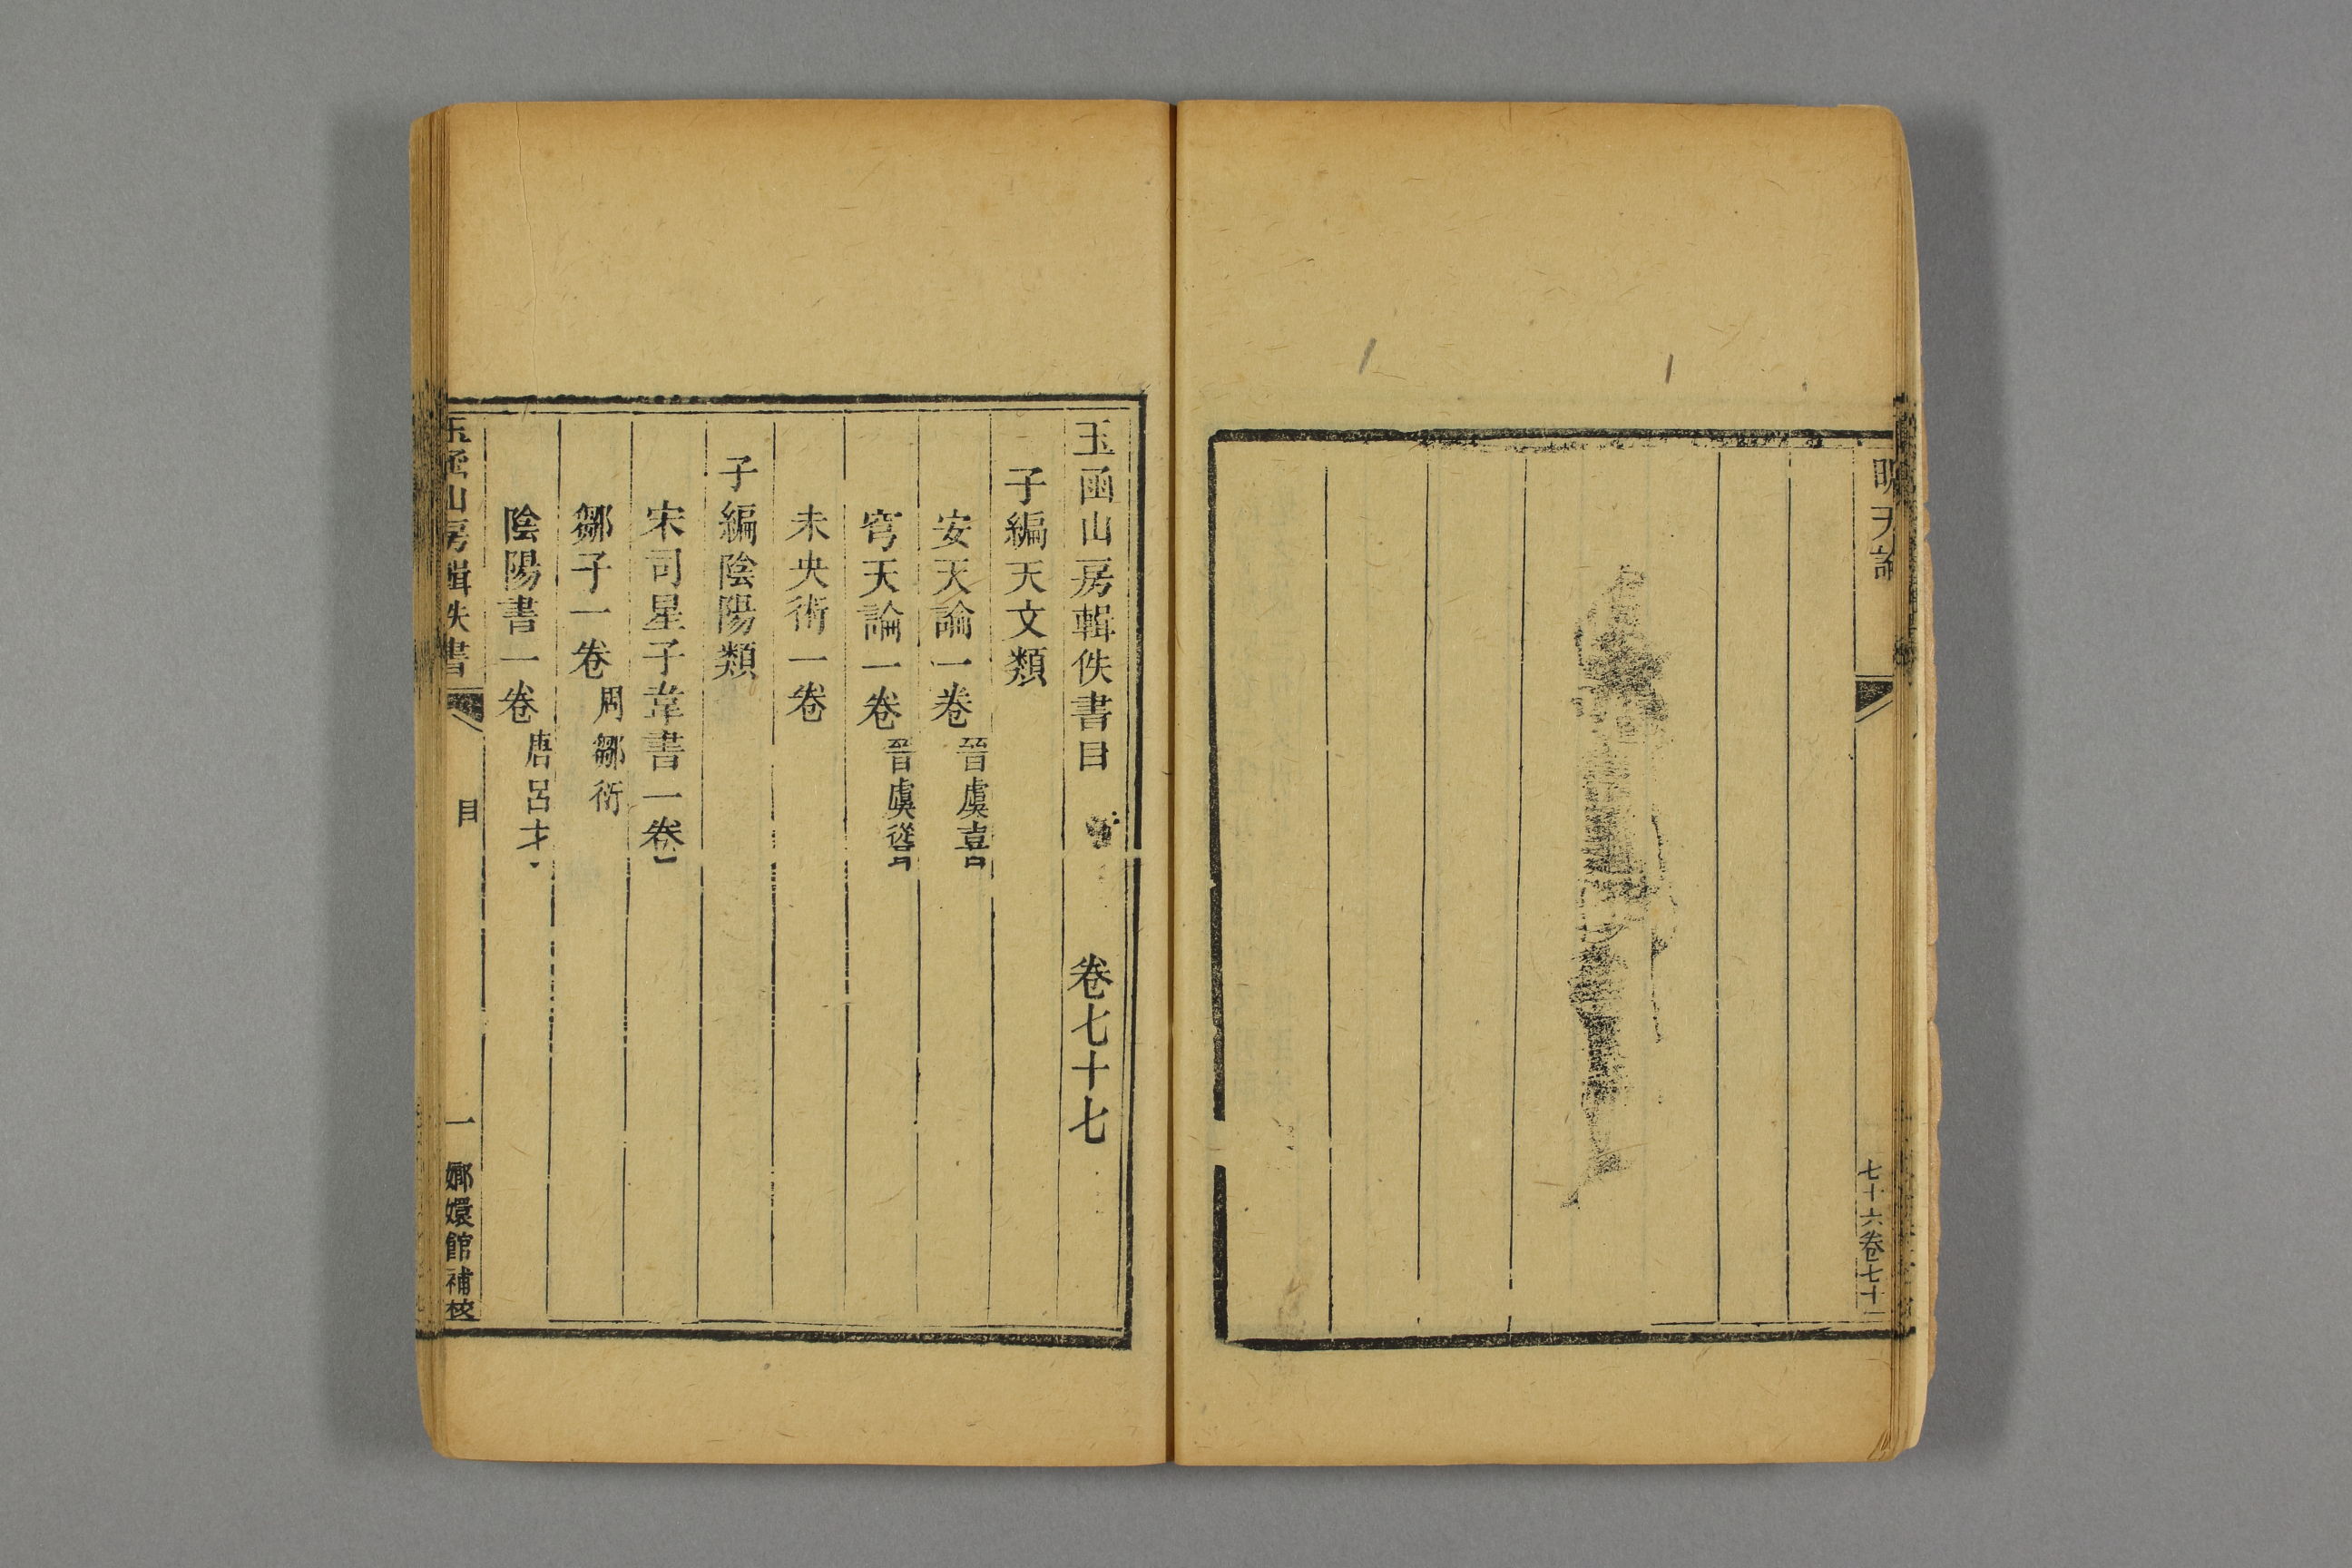 昕天論
七十六卷七十一
玉函山房輯佚書目 卷七十七
子編天文類
安天論一卷 晉虞喜
穹天論一卷 晉虞聳
未央術一卷
子編陰陽類
宋司星子韋書一卷
鄒子一卷 周鄒衍
陰陽書一卷 唐呂才
玉函山房輯佚書 目 一 嫏嬛館補校